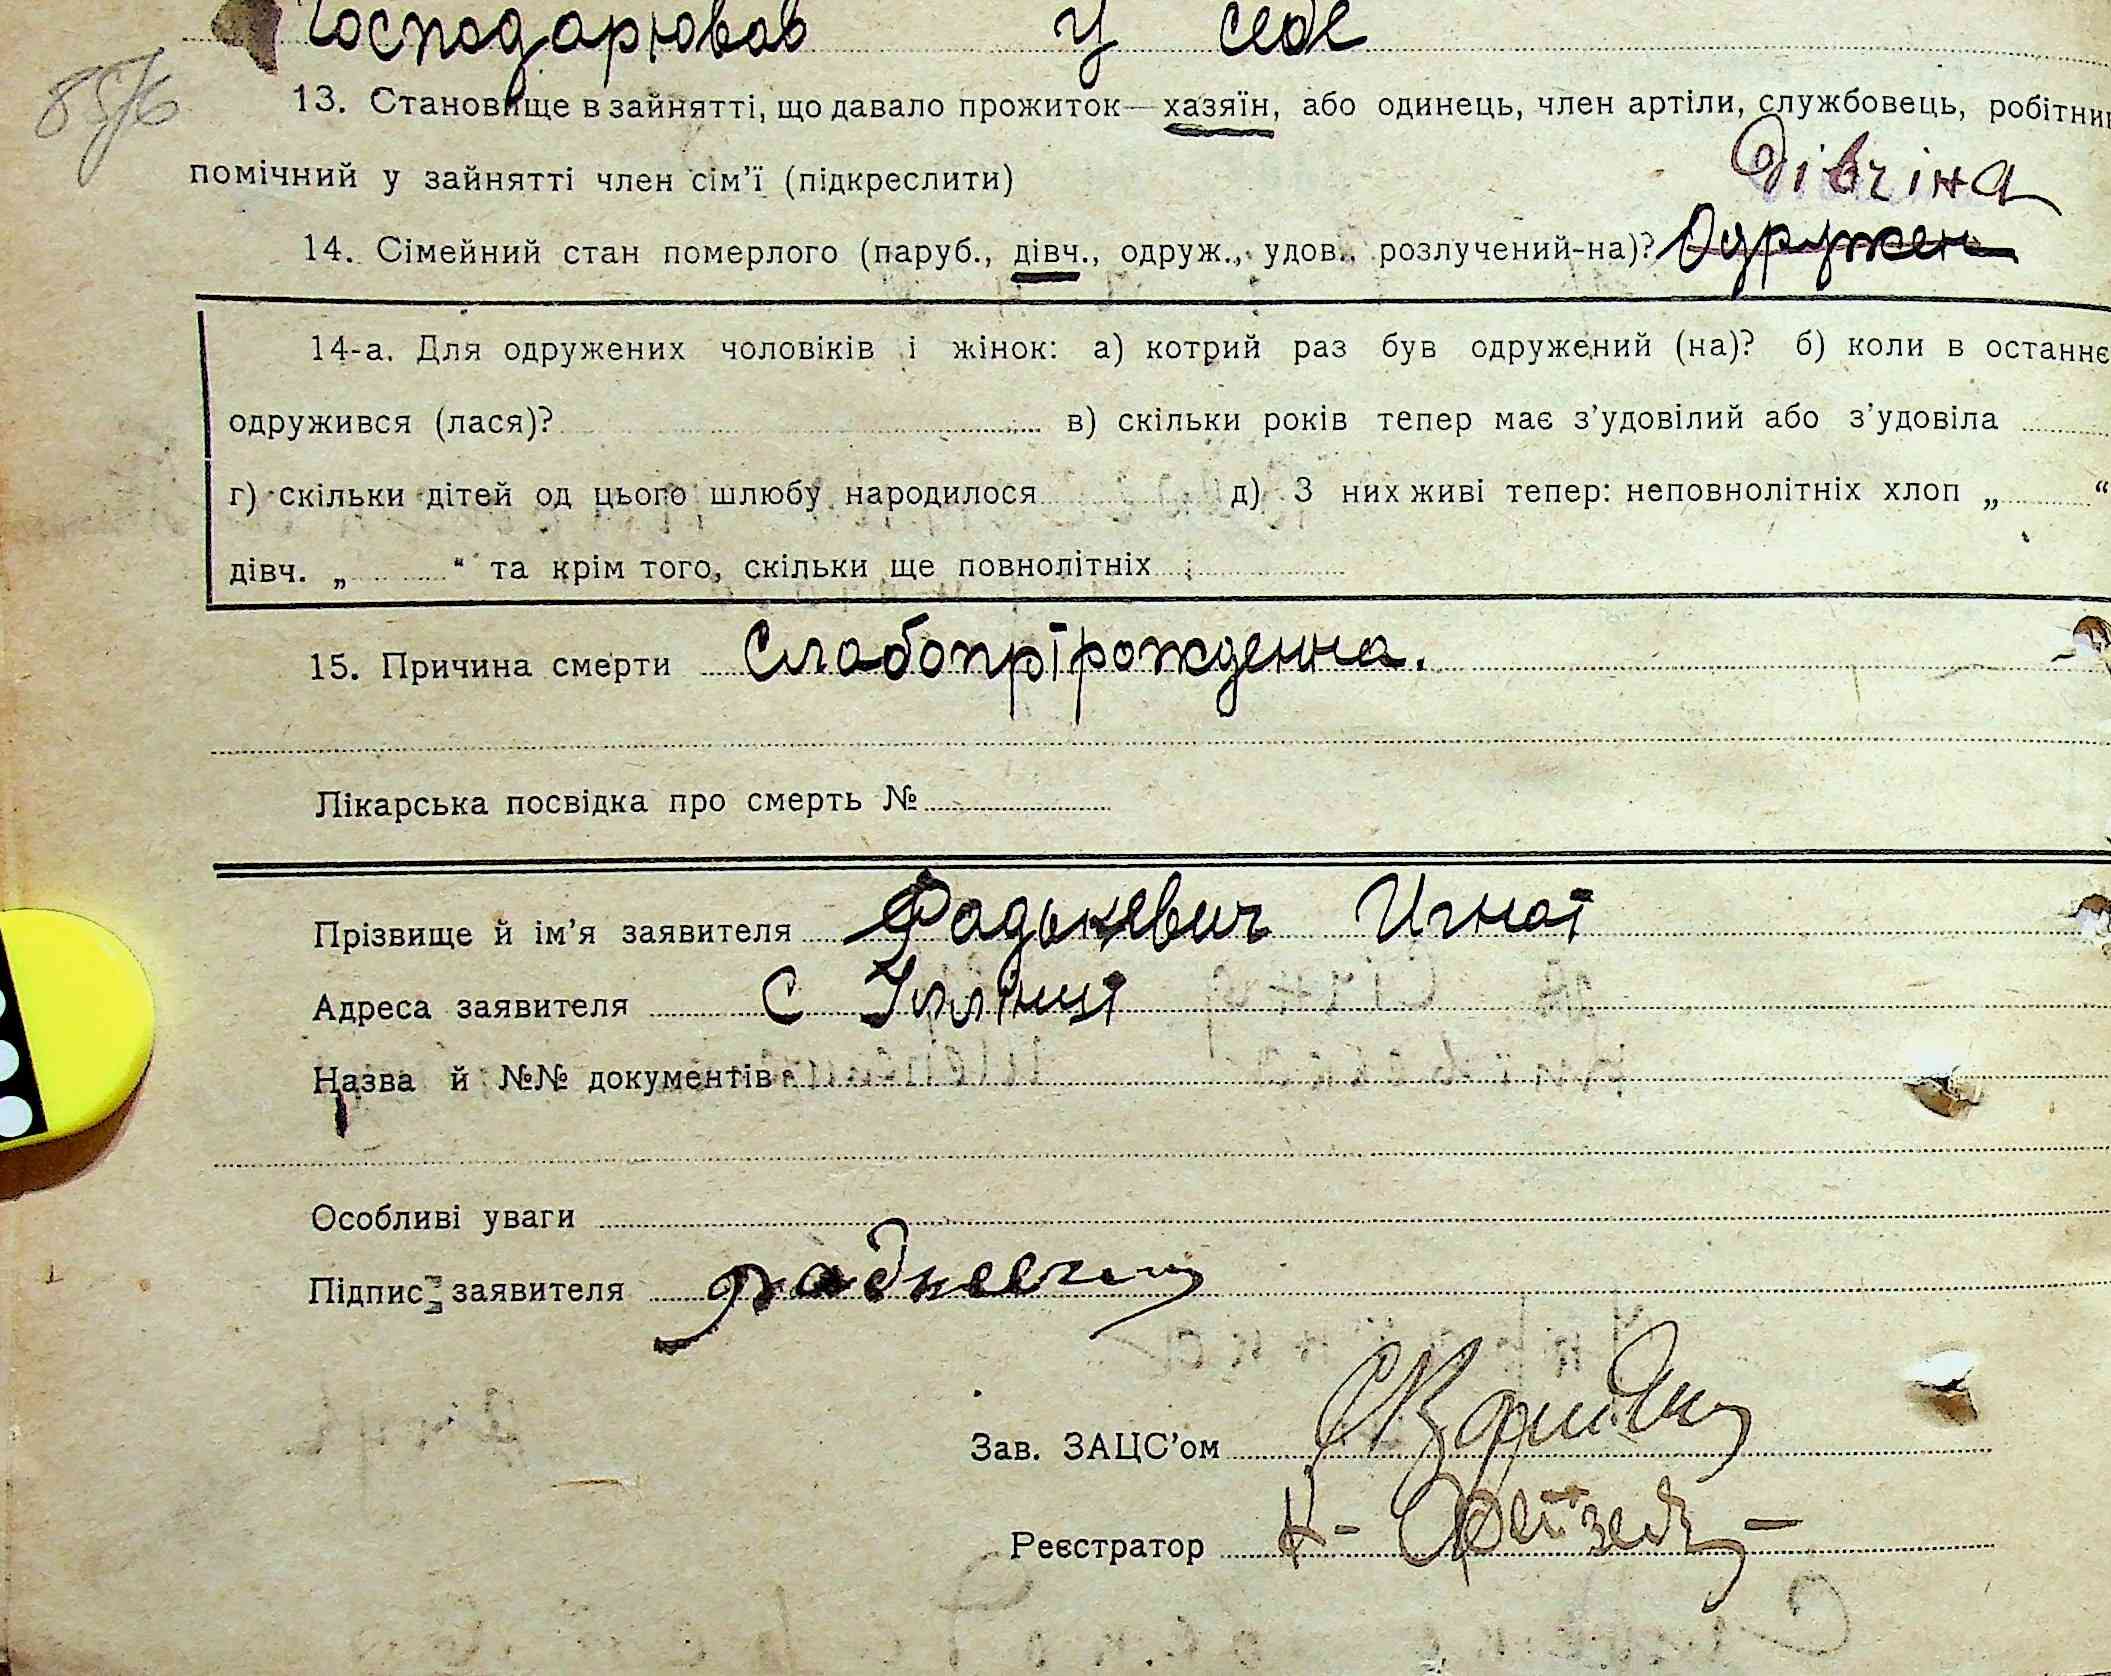 Господарював у себе
85/6
13. Становище в зайнятті, що давало прожиток—хазяїн, або одинець, член артіли, службовець, робітник
помічний у зайнятті член сім'ї (підкреслити)
дівчіна
14. Сімейний стан померлого (паруб., дівч., одруж., удов., розлучений-на)? Одружен
14-а. Для одружених чоловіків і жінок: а) котрий раз був одружений (на)? б) коли в останнє
одружився (лася)? в) скільки років тепер має з'удовілий або з'удовіла
г) скільки дітей од цього шлюбу народилося д) З них живі тепер: неповнолітніх хлоп „ “
дівч. „ “ та крім того, скільки ще повнолітніх
15. Причина смерти Слабопрірожденна.
Лікарська посвідка про смерть №
Прізвище й ім'я заявителя Фадькевич Игнат
Адреса заявителя С Іллінці
Назва й №№ документів
Особливі уваги
Підпис заявителя Фадкевич
Зав. ЗАЦС'ом
Реєстратор